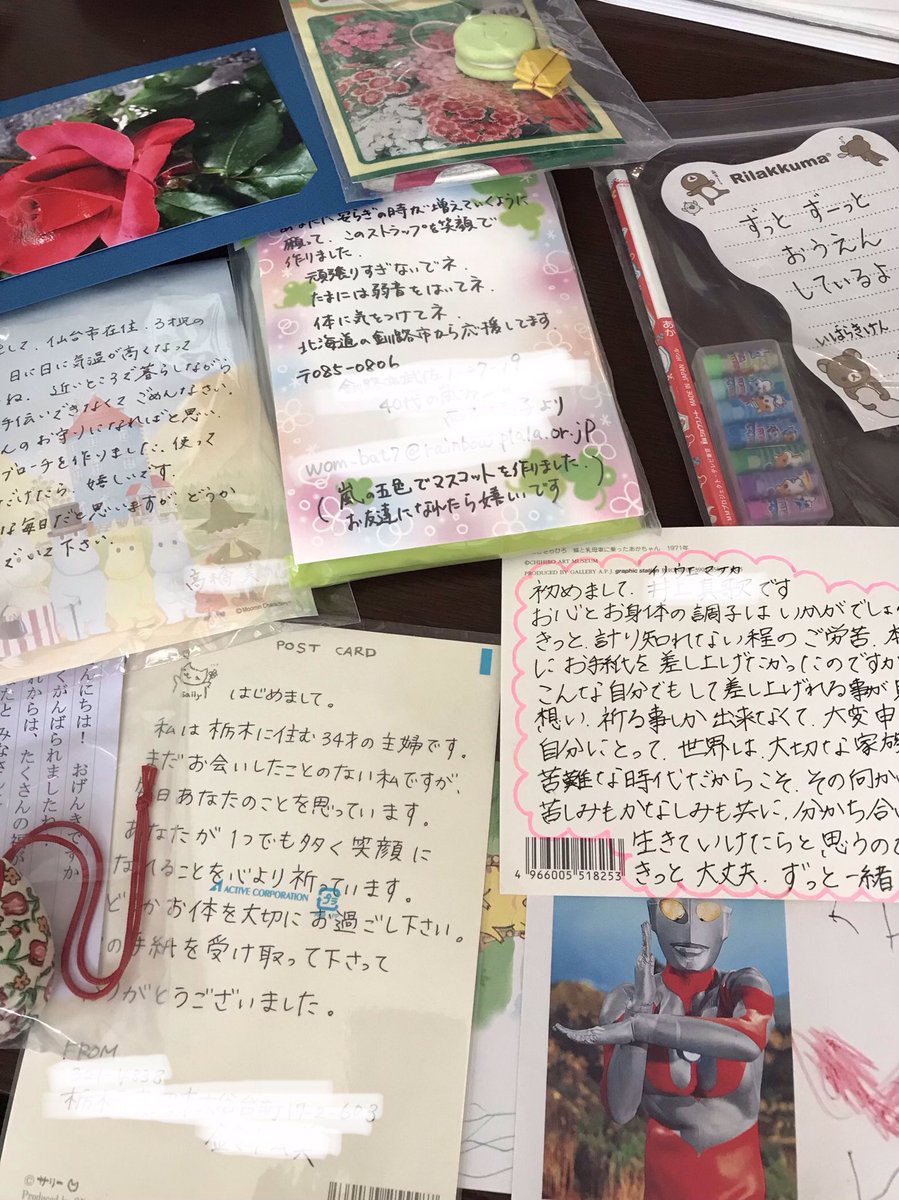 安らぎの時が増えていくように
願って、このストラップを笑顔で
作りました。
頑張りすぎないでネ。
たまには弱音をはいてネ。
体に気をつけてネ。
北海道の釧路市から応援してます。
(嵐の五色でマスコットを作りました。
お友達になれたら嬉しいです)
Rilakkuma
ずっと ずーっと
おうえん
しているよ
いばらきけん
あか
MADE IN JAPAN
して、仙台市在住、3才児の
日に日に気温が高くなって
ね。近いところで暮らしながら
手伝いできなくてごめんなさい。
んのお守りになればと思い、
ブローチを作りました。使って
だけたら、嬉しいです。
な毎日だと思いますが、どうか
でいて下さい。
©Moomin Characters
1971年
©CHIHIRO ART MUSEUM
PRODUCED BY GALLERY A.P.J. graphic station
初めまして、
です
お心とお身体の調子はいかがでしょ
きっと、計り知れない程のご労苦、本
にお手紙を差し上げたかったのですが
こんな自分でもして差し上げれる事が
想い、祈る事しか出来なくて、大変申
自分にとって、世界は、大切な家族
苦難な時代だからこそ、その何か
苦しみもかなしみも共に、分かち合い
生きていけたらと思うので
きっと大丈夫。ずっと一緒
4 966005 518253
POST CARD
Sally
はじめまして。
私は栃木に住む34才の主婦です。
まだお会いしたことのない私ですが、
毎日あなたのことを思っています。
あなたが1つでも多く笑顔に
なれることを心より祈っています。
ACTIVE CORPORATION
プラ
どうかお体を大切にお過ごし下さい。
の手紙を受け取って下さって
りがとうございました。
FROM
©サリー
んにちは! おげんきですか
くがんばられましたね。
れからは、たくさんの福が